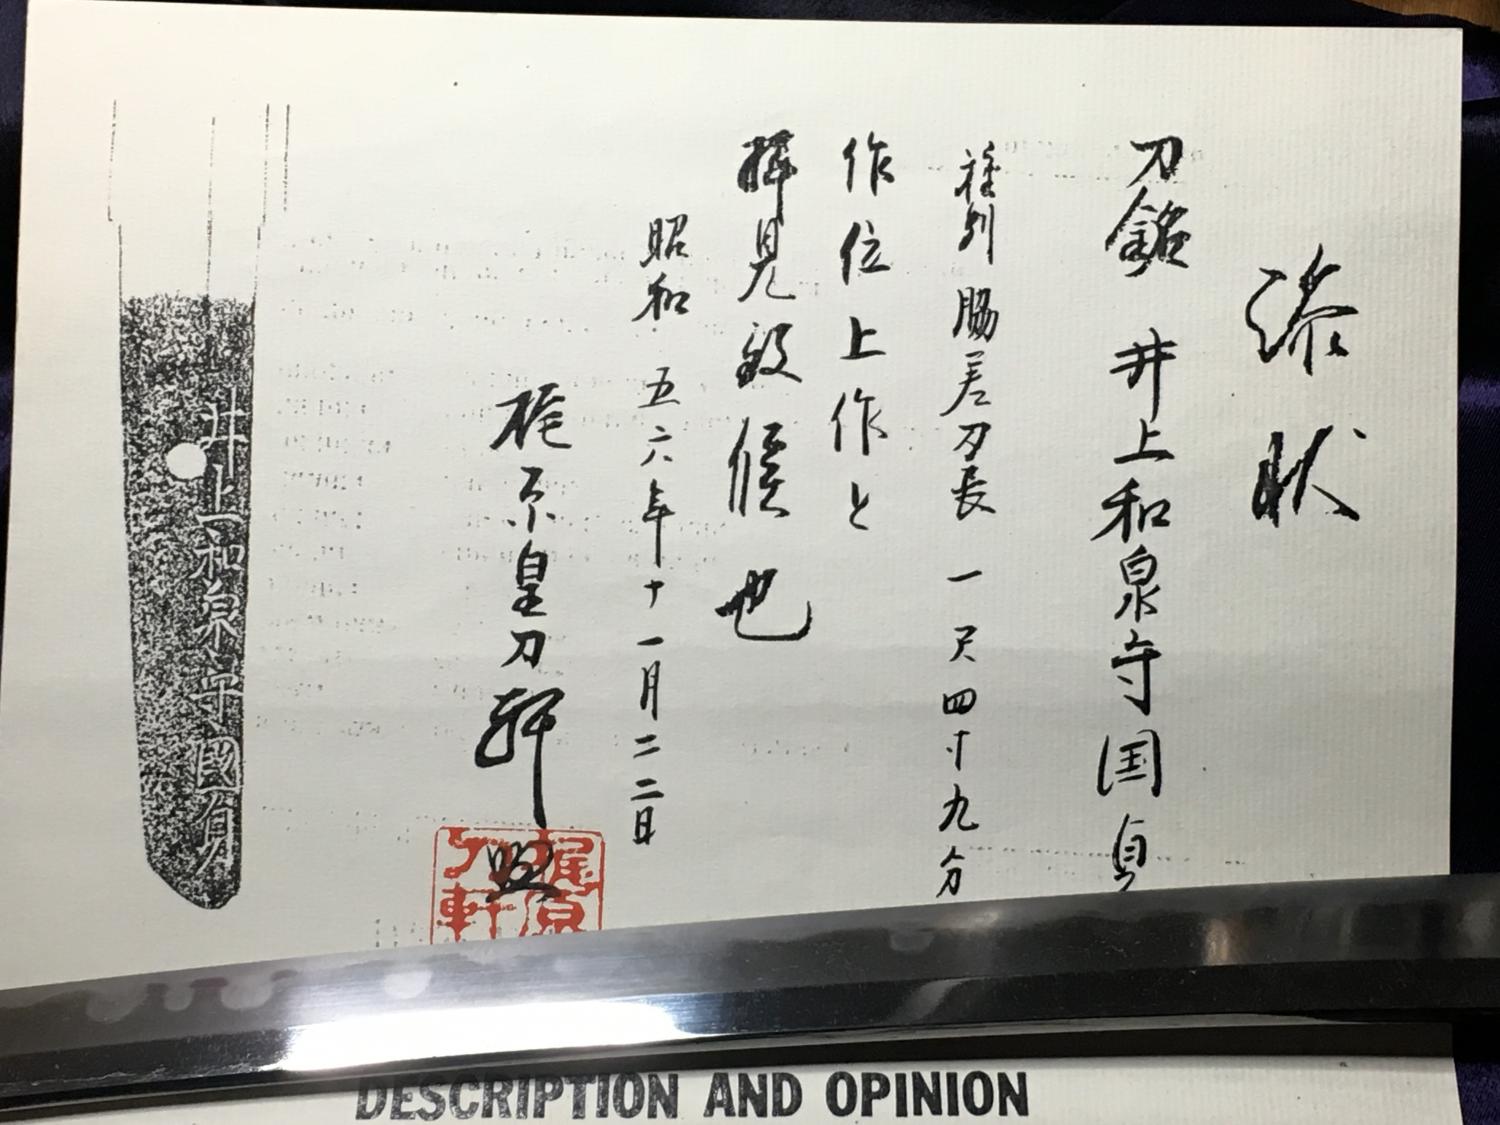 添状
刀銘 井上和泉守国貞
種別 脇差 刃長 一尺四寸九分
作位上作と
拝見致候也
昭和 五六年十一月二二日
梶原皇刀軒
梶原
刀軒
井上和泉守國貞
DESCRIPTION AND OPINION